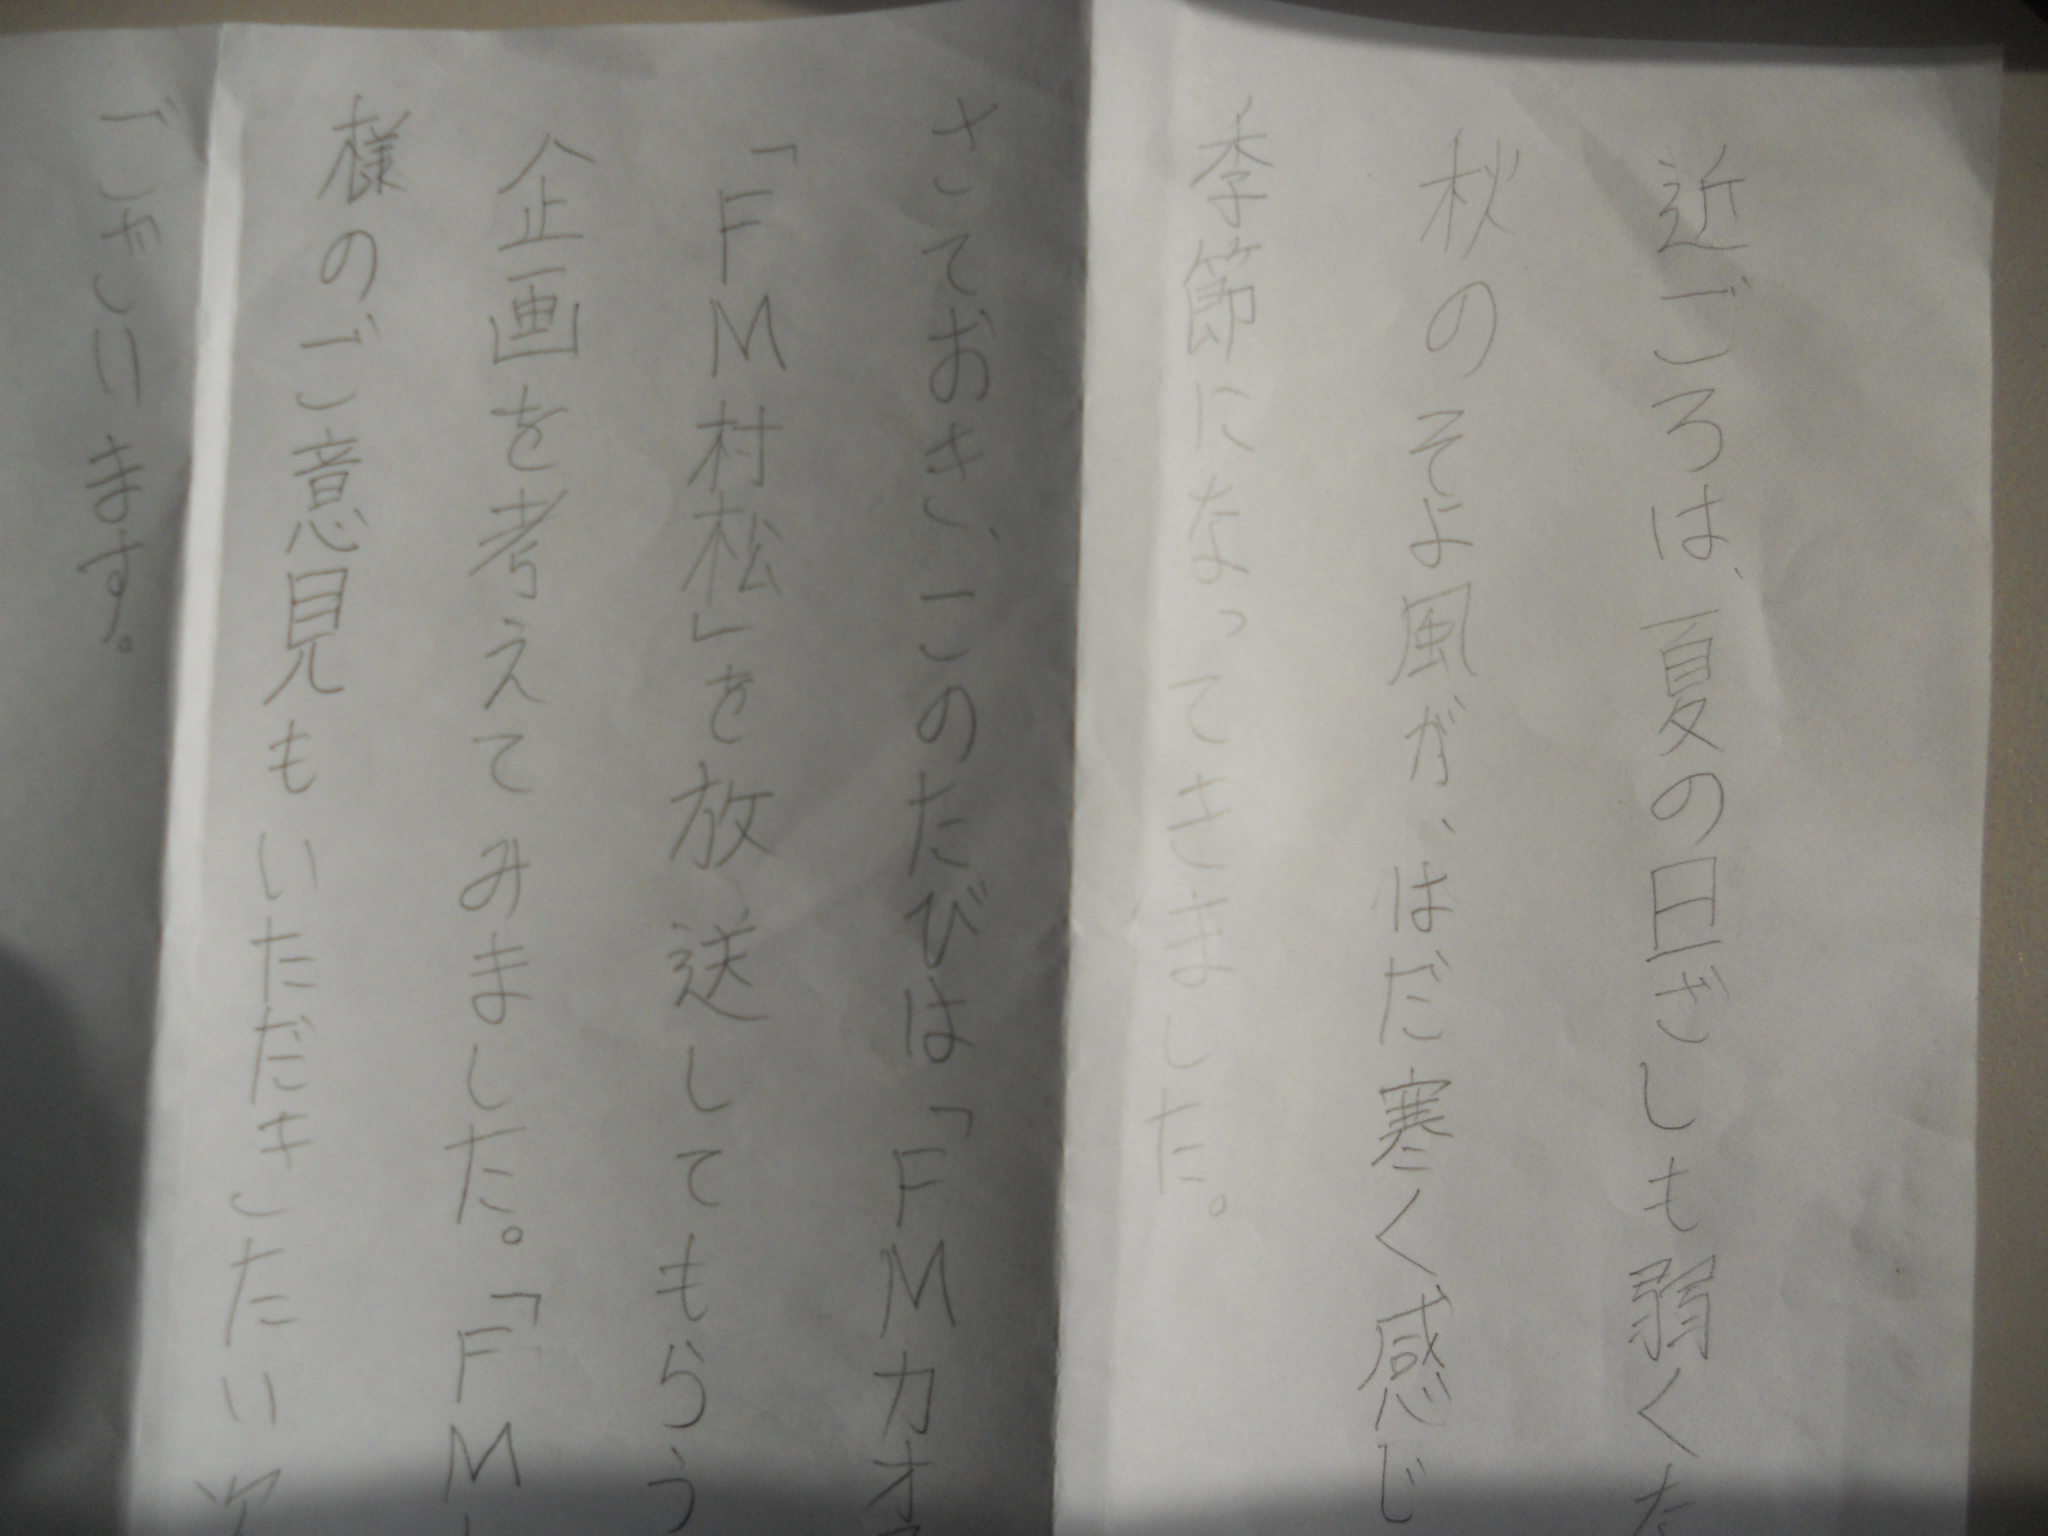 近ごろは、夏の日ざしも弱くな
秋のそよ風が、はだ寒く感じ
季節になってきました。
さておき、このたびは「FMカオ
「FM村松」を放送してもらう
企画を考えてみました。「FM
様のご意見もいただきたい次
ございます。